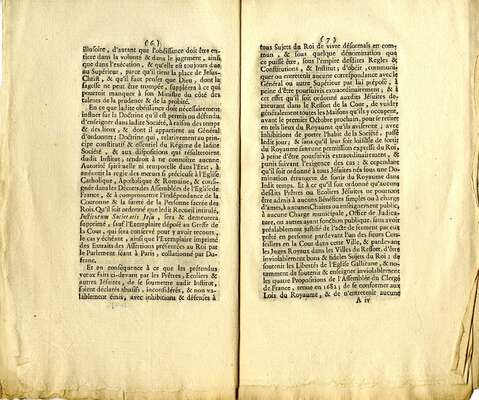 (6)
illusoire, d'autant que l'obéissance doit être en-
tiere dans la volonté & dans le jugement, ainsi
que dans l'exécution, & qu'elle est toujours due
au Supérieur, parce qu'il tient la place de Jesus-
Christ, & qu'il faut penser que Dieu, dont la
sagesse ne peut être trompée, suppléera à ce qui
pourroit manquer à son Ministre du côté des
talens de la prudence & de la probité.
En ce que ladite obéissance doit nécessairement
influer sur la Doctrine qu'il est permis ou défendu
d'enseigner dans ladite Société, à raison des temps
& des lieux, & dont il appartient au Général
d'ordonner; Doctrine qui, relativement au prin-
cipe constitutif & essentiel du Régime de ladite
Société, & aux dispositions qui
dudit Institut, tendroit à ne connoître aucune
Autorité spirituelle ni temporelle dans l'Etat, à
anéantir la regle des mœurs si précieuse à l'Eglise
Catholique, Apostolique & Romaine, & consi-
gnée dans les Décrets des Assemblées de l'Eglise de
France, & à compromettre l'indépendance de la
Couronne & la sûreté de la Personne sacrée des
Rois. Qu'il soit ordonné que ledit Recueil intitulé,
Institutum Societatis Jesu, sera & demeurera
supprimé, sauf l'Exemplaire déposé au Greffe de
la Cour, qui sera conservé pour y avoir recours,
le cas y échéant, ainsi que l'Exemplaire imprimé
des Extraits des Assertions présentées au Roi par
le Parlement séant à Paris, collationné par Du-
franc.
Et en conséquence à ce que les prétendus
vœux faits ci-devant par les Prêtres, Ecoliers &
autres Jésuites, de se soumettre audit Institut,
soient déclarés abusifs, inconsidérés, & non va-
lablement émis, avec inhibitions & défenses à
(7)
tous Sujets du Roi de vivre désormais en com-
mun, & sous quelque dénomination que
ce puisse être, sous l'empire desdites Regles &
Constitutions, & Institut; d'obéir, communi-
quer ou entretenir aucune correspondance avec le
Général ou autre Supérieur par lui préposé, à
peine d'être poursuivis extraordinairement; & à
cet effet qu'il soit ordonné auxdits Jésuites de-
meurant dans le Ressort de la Cour, de vuider
généralement toutes les Maisons qu'ils y occupent,
avant le premier Octobre prochain, pour se retirer
en tels lieux du Royaume qu'ils aviseront; avec
inhibitions de porter l'habit de la Société, passé
ledit jour; & sans qu'il leur soit loisible de sortir
du Royaume sans une permission expresse du Roi,
à peine d'être poursuivis extraordinairement, &
punis suivant l'exigence des cas: & cependant
qu'il soit ordonné à tous Jésuites nés sous une Do-
mination étrangere de sortir du Royaume dans
ledit temps. Et à ce qu'il soit ordonné qu'aucun
desdits Prêtres ou Ecoliers Jésuites ne pourront
être admis à aucuns Bénéfices simples ou à charge
d'ames, à aucunes Chaires ou enseignement public,
à aucune Charge municipale, Office de Judica-
ture, ou autres ayant fonction publique, sans avoir
préalablement justifié de l'acte de serment par eux
prêté en personne pardevant l'un des sieurs Con-
seillers en la Cour dans cette Ville, & pardevant
les Juges Royaux dans les Villes du Ressort, d'être
inviolablement bons & fideles Sujets du Roi; de
soutenir les Libertés de l'Eglise Gallicane, & no-
tamment de soutenir & enseigner inviolablement
les quatre Propositions de l'Assemblée du Clergé
de France, tenue en 1682; de se conformer aux
Loix du Royaume, & de n'entretenir aucune
A iv